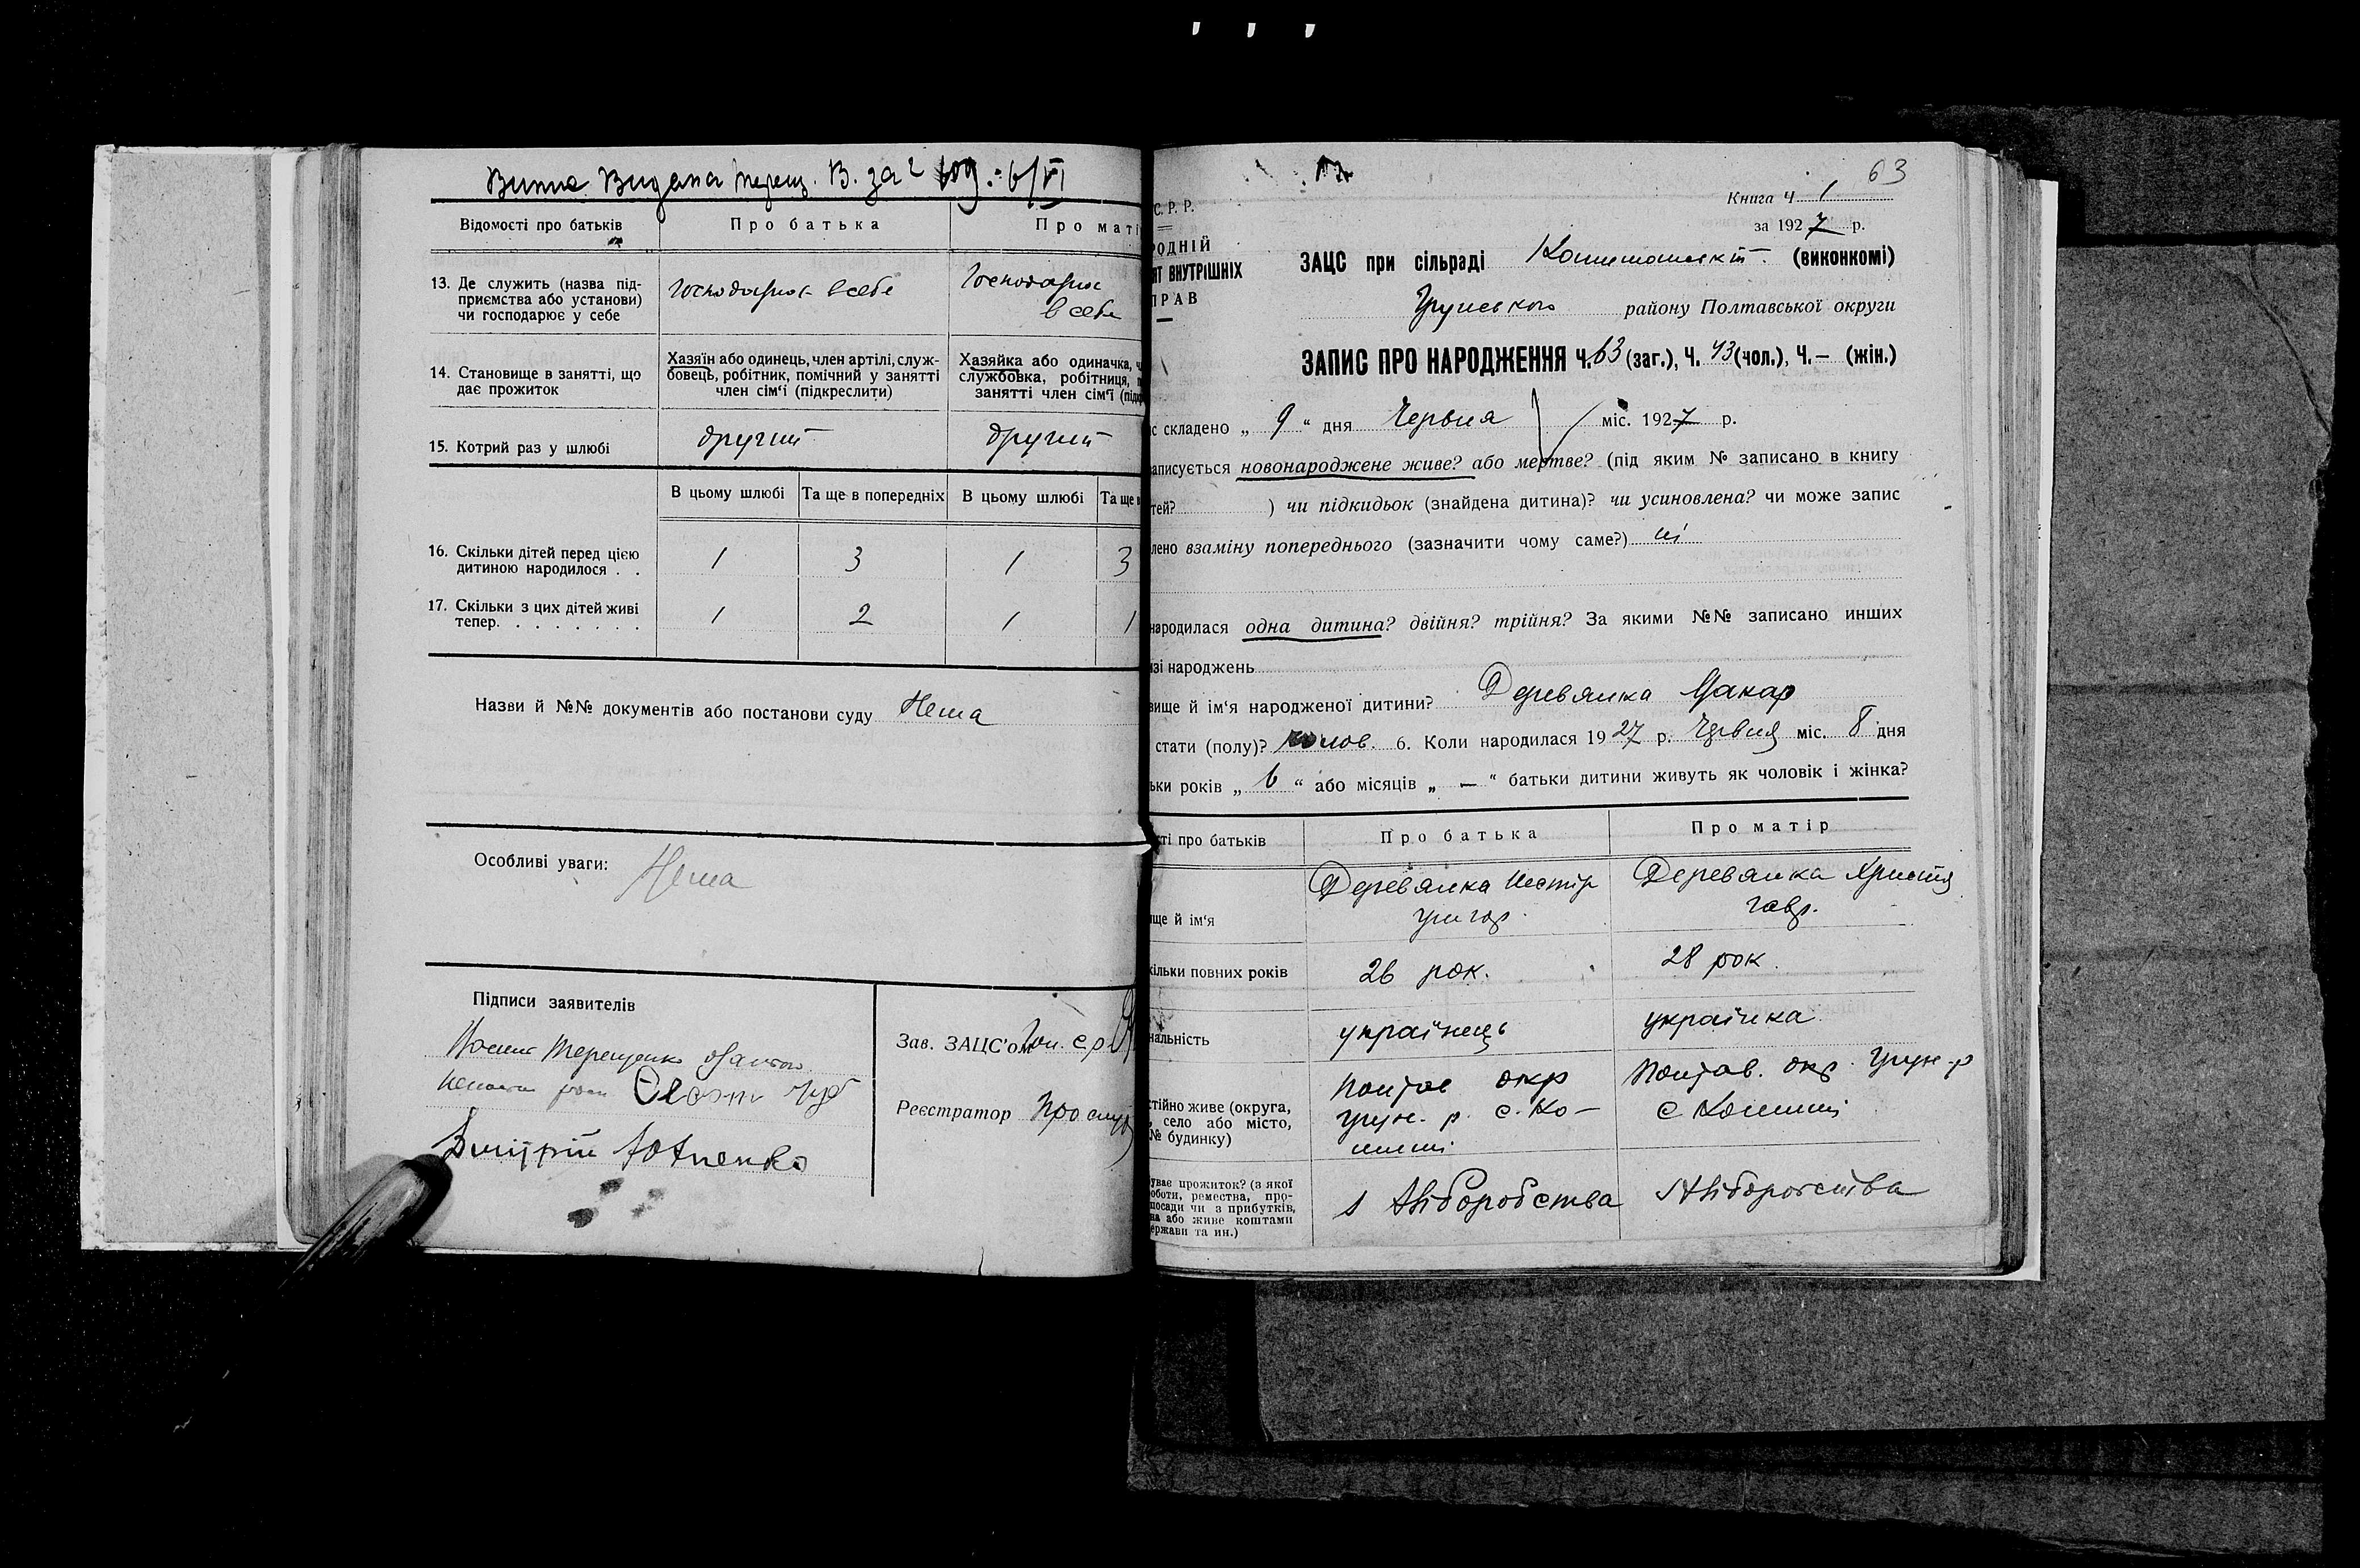 Виписка Видана Терещ. В. за 2 год. 6/VI
Відомості про батьків
Про батька
Про маті
13. Де служить (назва під-
приємства або установи)
чи господарює у себе
Господарює в себе
Господарює
в себе
14. Становище в занятті, що
дає прожиток
Хазяїн або одинець, член артілі, служ-
бовець, робітник, помічний у занятті
член сім'ї (підкреслити)
Хазяйка або одиначка, ч
службовка, робітниця, п
занятті член сім'ї (підк
15. Котрий раз у шлюбі
другий
другий
В цьому шлюбі
Та ще в попередніх
В цьому шлюбі
Та ще в
16. Скільки дітей перед цією
дитиною народилося . .
1
3
1
3
17. Скільки з цих дітей живі
тепер. . . . . . . .
1
2
1
1
Назви й №№ документів або постанови суду Нема
Особливі уваги: Нема
Підписи заявителів
Терещенко
Дмитрій
Зав. ЗАЦС'ом
Реєстратор
63
Книга Ч 1
за 1927 р.
С. Р. Р.
РОДНІЙ
ЯТ ВНУТРІШНІХ
ПРАВ
ЗАЦС при сільраді (виконкомі)
Грунського району Полтавської округи
ЗАПИС ПРО НАРОДЖЕННЯ Ч. 63 (заг.), Ч. 43 (чол.), Ч. — (жін.)
с складено „ 9 “ дня Червня міс. 1927 р.
аписується новонароджене живе? або мертве? (під яким № записано в книгу
тей? ) чи підкидьок (знайдена дитина)? чи усиновлена? чи може запис
лено взаміну попереднього (зазначити чому саме?) ні
народилася одна дитина? двійня? трійня? За якими №№ записано инших
изі народжень
вище й ім'я народженої дитини? Деревянка Макар
стати (полу)? чолов. 6. Коли народилася 1927 р. Червня міс. 8 дня
ьки років „ 6 “ або місяців „ — “ батьки дитини живуть як чоловік і жінка?
ті про батьків
Про батька
Про матір
ище й ім'я
Деревянка Нестір
григор.
Деревянка Христя
гавр.
кільки повних років
26 рок.
28 рок.
нальність
українець
українка
стійно живе (округа,
село або місто,
№ будинку)
Полтав окр
грун. р. с. Ко-
миші
Полтав. окр. Грун. р
с Комиші
уває прожиток? (з якої
оботи, ремества, про-
посади чи з прибутків,
на або живе коштами
ержави та ин.)
з хліборобства
з хліборобства